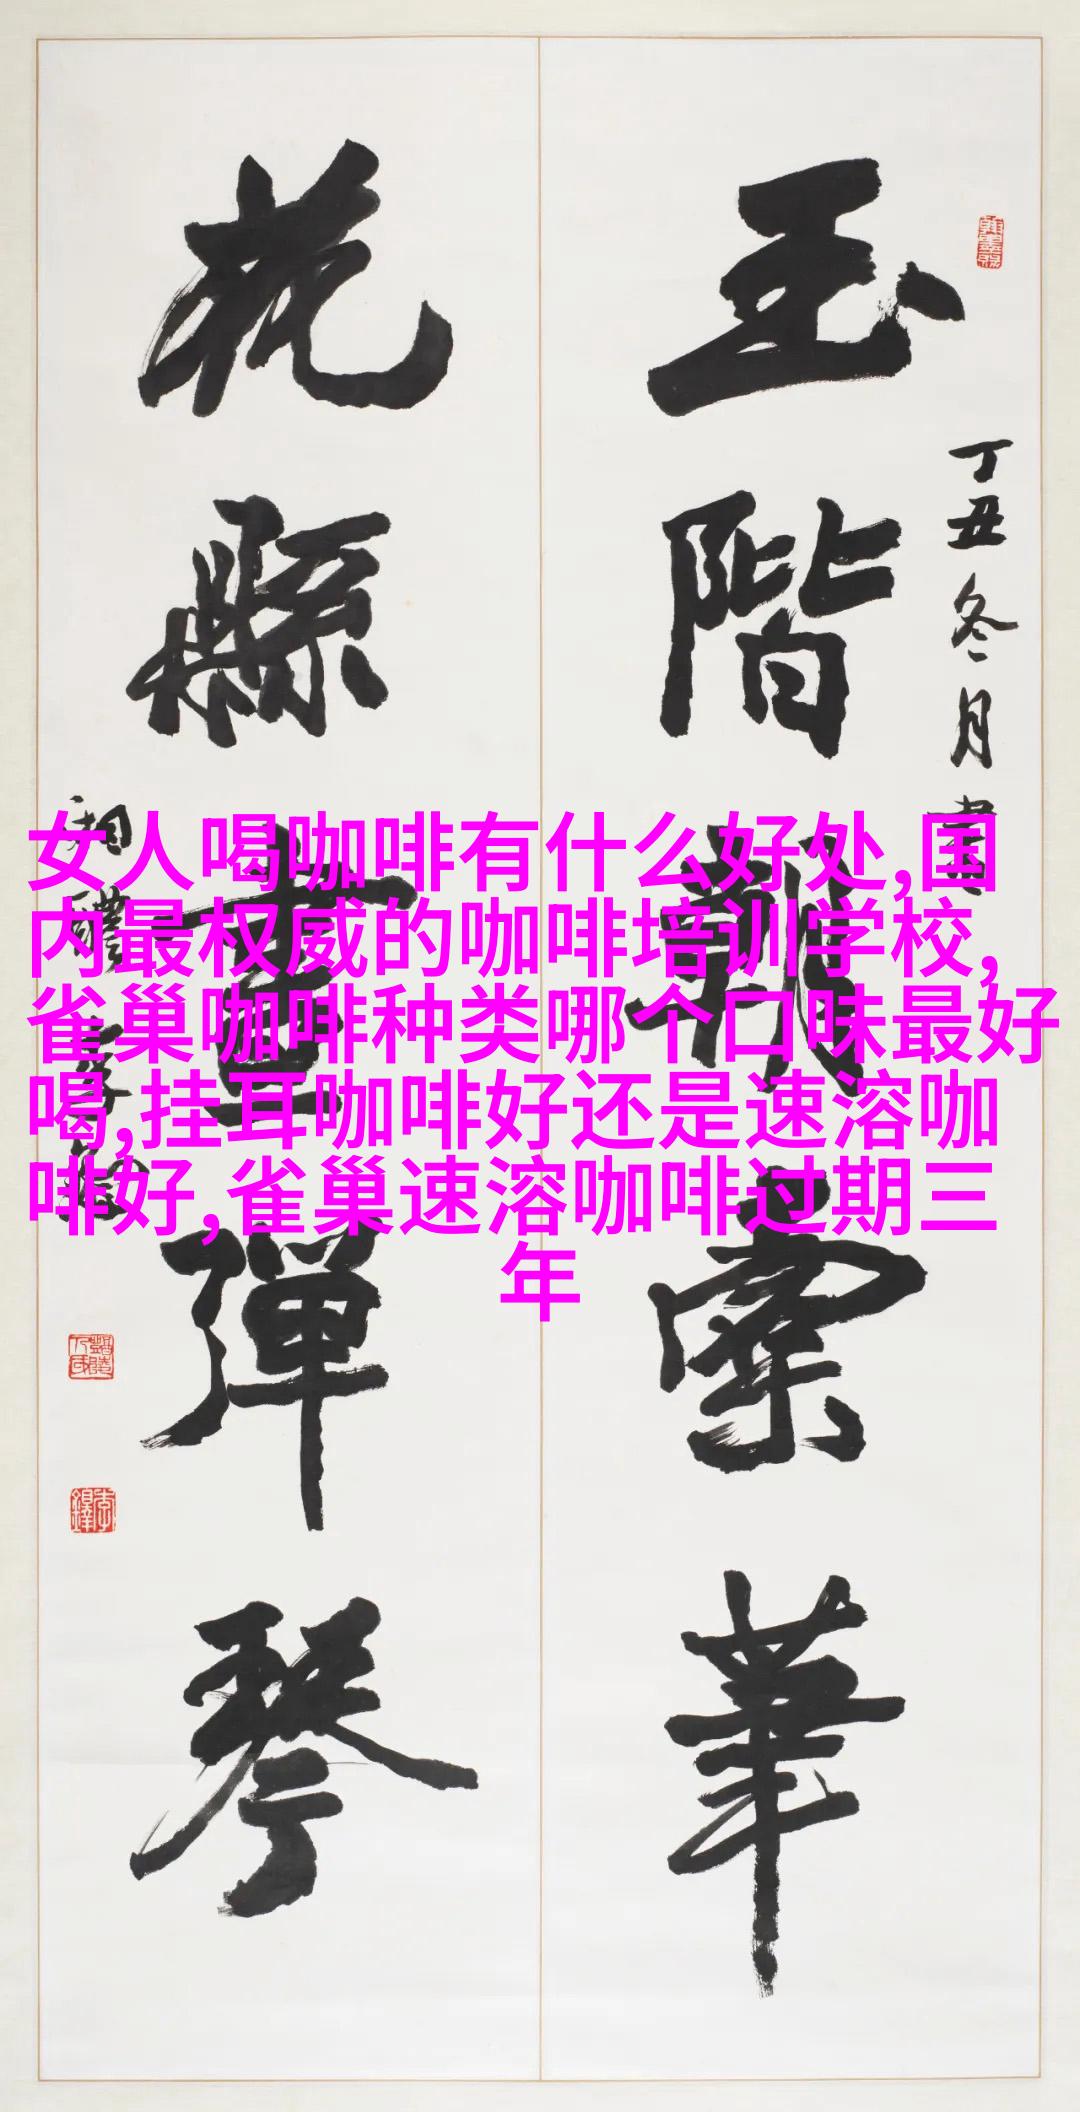 玉階朝霂華
花縣畫彈琴
丁丑冬月書
湘醴李鐸
女人喝咖啡有什么好处,国
内最权威的咖啡培训学校,
雀巢咖啡种类哪个口味最好
喝,挂耳咖啡好还是速溶咖
啡好,雀巢速溶咖啡过期三
年